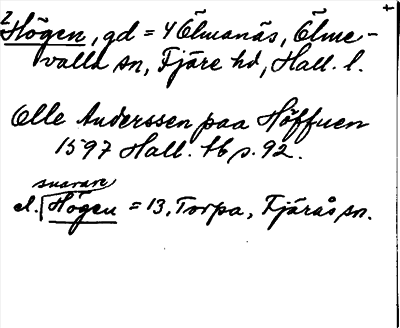 2 Högen, gd = 4 Ölmanäs, Ölme-
valla sn, Fjäre hd, Hall. l.
Olle Anderssen paa Höffuen
1597 Hall. tb s. 92.
snarare
el. Högen = 13, Torpa, Fjärås sn.